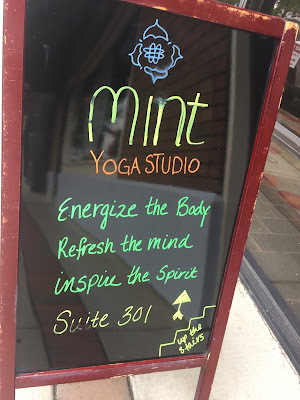 mint
YOGA STUDIO
Energize the Body
Refresh the mind
inspire the Spirit
Suite 301
up the
stairs